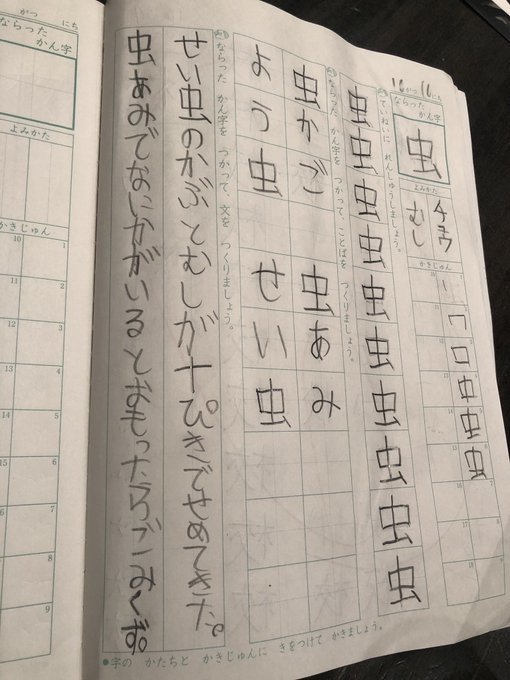 がつ にち
ならった かん字
虫
よみかた
チョウ
むし
かきじゅん
ていねいに れんしゅうしましょう。
虫虫虫虫虫虫虫虫虫虫
ならった かん字を つかって、ことばを つくりましょう。
虫かご 虫あみ
よう虫 せい虫
ならった かん字を つかって、文を つくりましょう。
せい虫のかぶとむしが十ぴきでせめてきた。
虫あみでないかがいるとおもったらごみくず。
●字の かたちと かきじゅんに きをつけて かきましょう。
がつ にち
ならった かん字
よみかた
かきじゅん
1 2 3 4 5 6 7 8 9
10 11 12 13 14 15 16 17 18